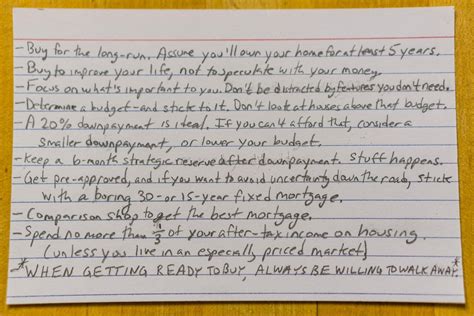 - Buy for the long-run. Assume you'll own your home for at least 5 years.
- Buy to improve your life, not to speculate with your money.
- Focus on what's important to you. Don't be distracted by features you don't need.
- Determine a budget - and stick to it. Don't look at houses above that budget.
- A 20% downpayment is ideal. If you can't afford that, consider a
smaller downpayment, or lower your budget.
- Keep a 6-month strategic reserve after downpayment. Stuff happens.
- Get pre-approved, and if you want to avoid uncertainty down the road, stick
with a boring 30- or 15-year fixed mortgage.
- Comparison shop to get the best mortgage.
- Spend no more than 1/3 of your after-tax income on housing
(unless you live in an especially priced market)
* WHEN GETTING READY TO BUY, ALWAYS BE WILLING TO WALK AWAY *